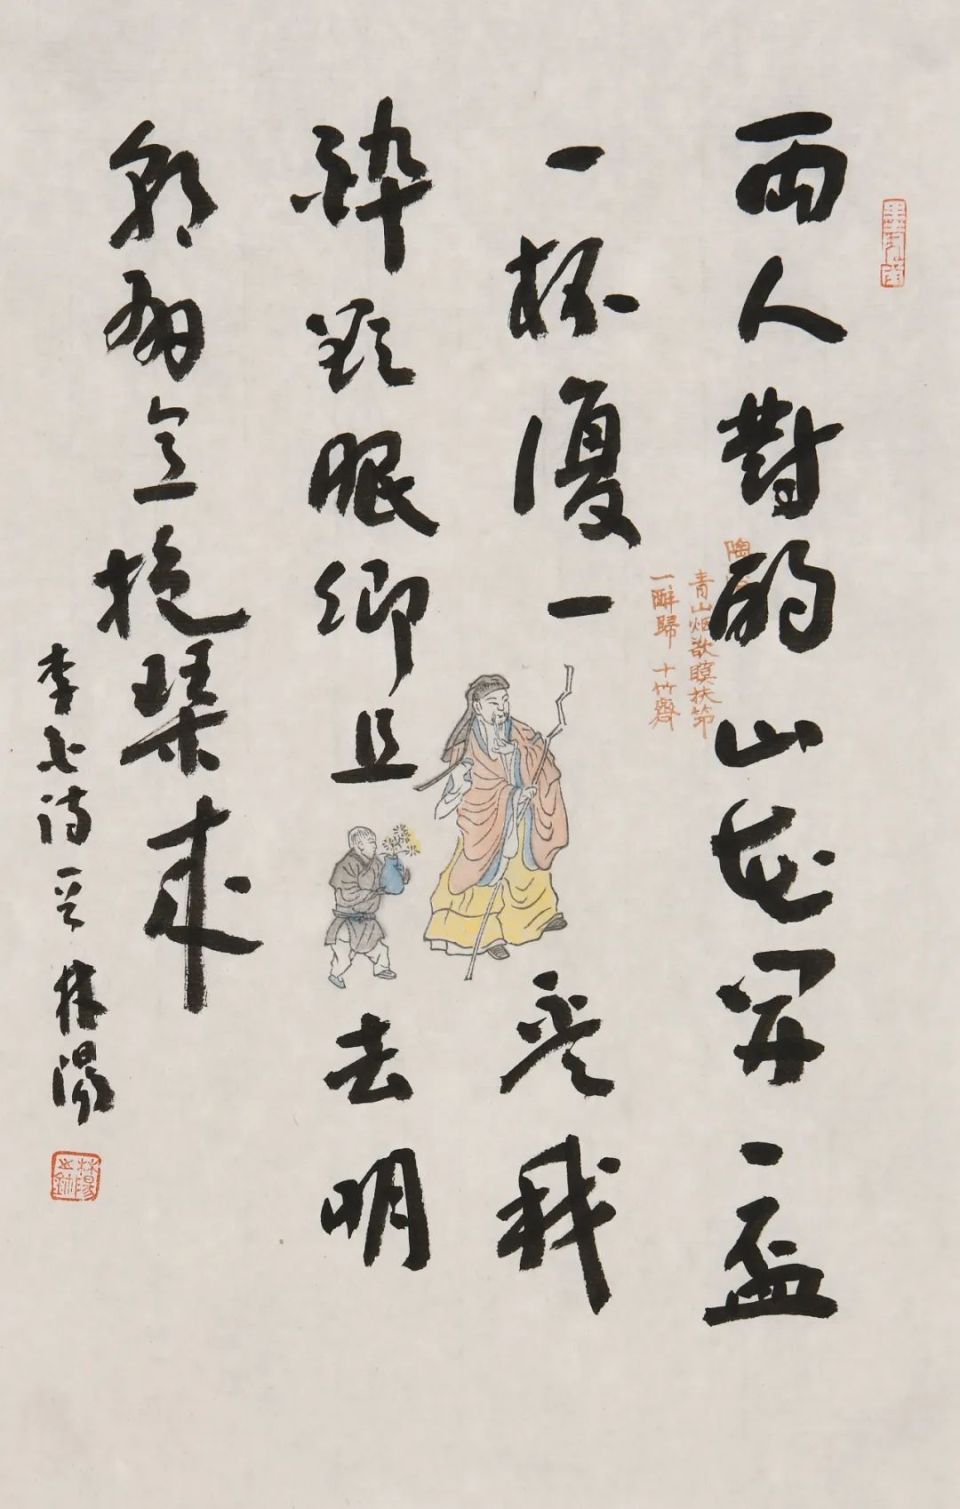 兩人對酌山花開一盃
一杯復一盃我
醉欲眠卿且去明
朝有意抱琴來
李白詩一首 林陽
陶
青山烟欲暝扶筇
一醉歸 十竹齋
林陽之鉨